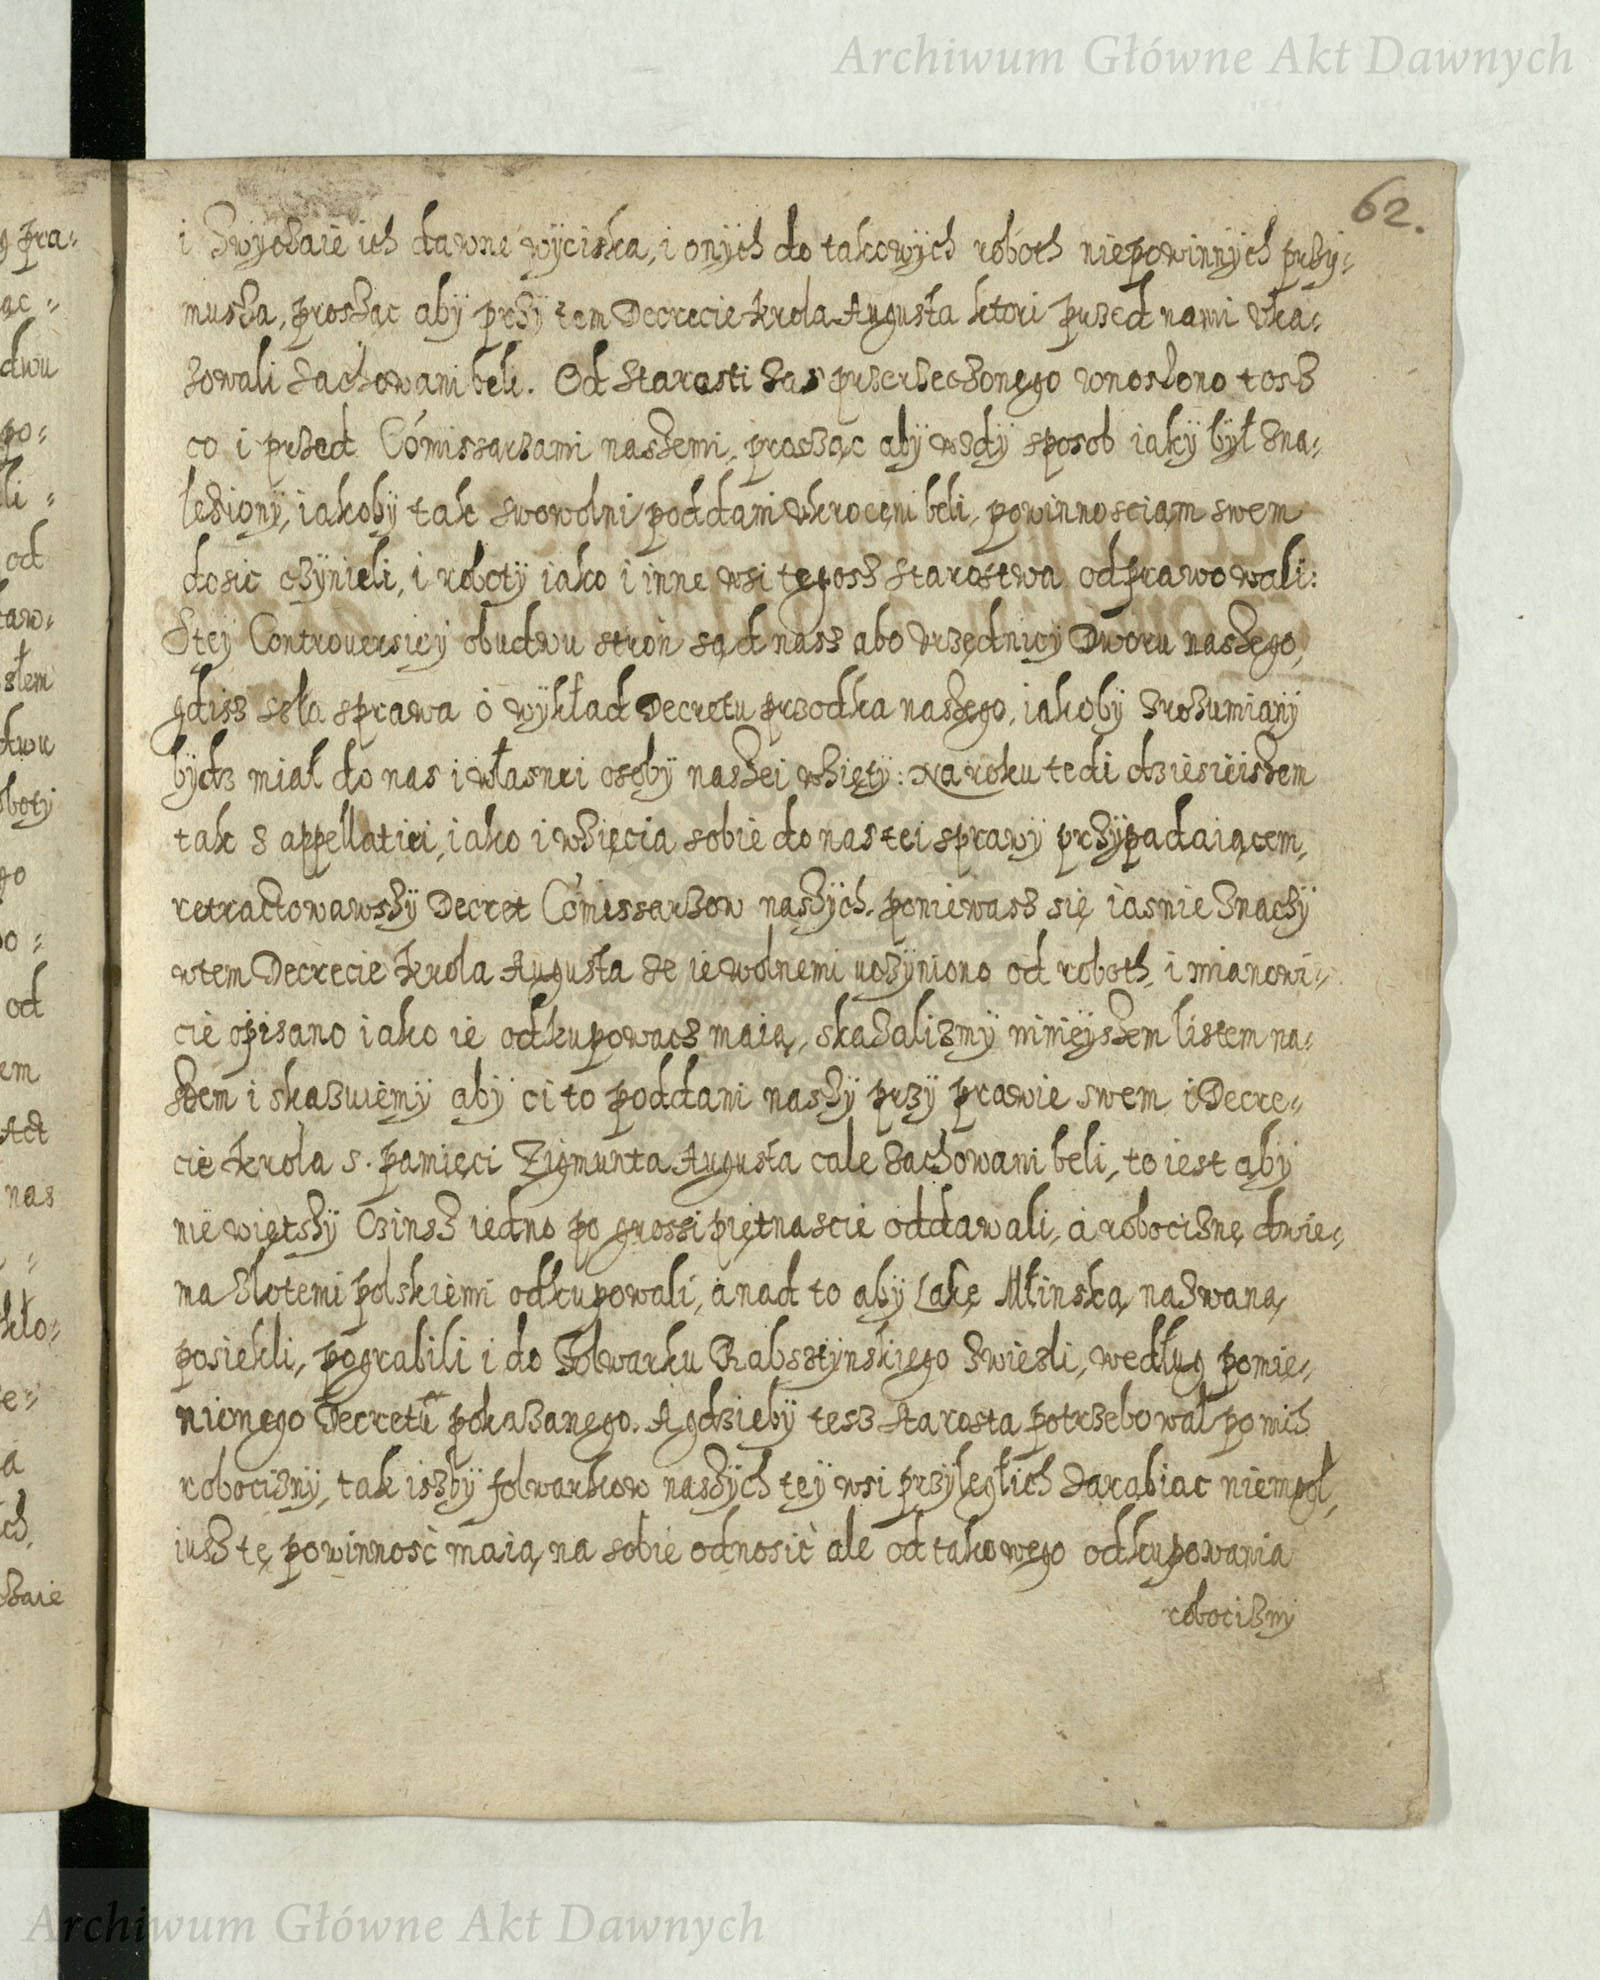 Archiwum Główne Akt Dawnych
62.
i zwyczaie ich dawne wyciska, i onych do takowych roboth niepowinnych przy-
musza, prosząc aby przy tem Decrecie Krola Augusta ktori przed nami uka-
zowali zachowani beli. Od Starosti zas przerzeczonego wnoszono tosz
co i przed Comissarzami naszemi, prosząc aby wzdy sposob iaky był zna-
leziony, iakoby tak swowolni poddani ukroceni beli, powinnosciam swem
dosic czynieli, i roboty iako i inne wsi tegosz Starostwa odprawowali:
Stey Controuersiey obudwu stron sąd nasz abo urzędnicy Dworu naszego,
gdisz szła sprawa o wykład Decretu przodka naszego, iakoby zrozumiany
bydz miał do nas i własnei osoby naszei wzięty: Na roku tedi dzisieiszem
tak z appellatiei, iako i wzięcia sobie do nas tei sprawy przypadaiącem,
retractowawszy Decret Comissarzow naszych, poniewasz się iasnie znaczy
wtem Decrecie Krola Augusta ze ie wolnemi uczyniono od roboth, i mianowi-
cie opisano iako ie odkupowacz maią, skazalizmy ninieyszem listem na-
szem i skazuiemy aby ci to poddani naszy przy prawie swem i Decre-
cie Krola s. pamięci Zigmunta Augusta cale zachowani beli, to iest aby
nie więtszy Czinsz iedno po grossi piętnascie oddawali, a robociznę dwie-
ma Złotemi polskiemi odkupowali, a nad to aby Lakę Młinską nazwaną
posiekli, pograbili i do Folwarku Rabsztynskiego zwiezli, według pomie-
nionego Decretu pokazanego. A gdzieby tesz Starosta potrzebował po nich
robocizny, tak iszby folwarkow naszych tey wsi przyległich zarabiac niemogł,
iusz tę powinnosc maią na sobie odnosic ale od takowego odkupowania
robocizny
Archiwum Główne Akt Dawnych